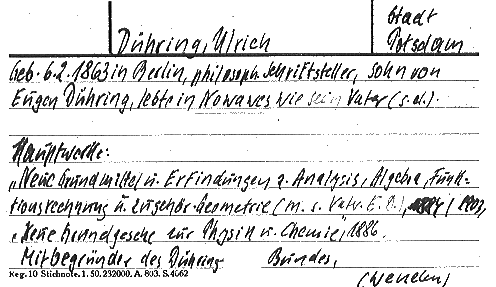 Stadt
Dühring, Ulrich Potsdam
Geb. 6.2.1863 in Berlin, philosoph. Schriftsteller, Sohn von
Eugen Dühring, lebte in Nowawes wie sein Vater (s.d.).
Hauptwerke:
"Neue Grundmittel u. Erfindungen z. Analysis, Algebra, Funk-
tionsrechnung u. zugehör. Geometrie (m. s. Vater E. D.), 1903,
"Neue Grundgesetze zur Physik u. Chemie", 1886.
Mitbegründer des Dühring Bundes,
Reg. 10 Stichnote. 1. 50. 232000. A. 803. S. 4062